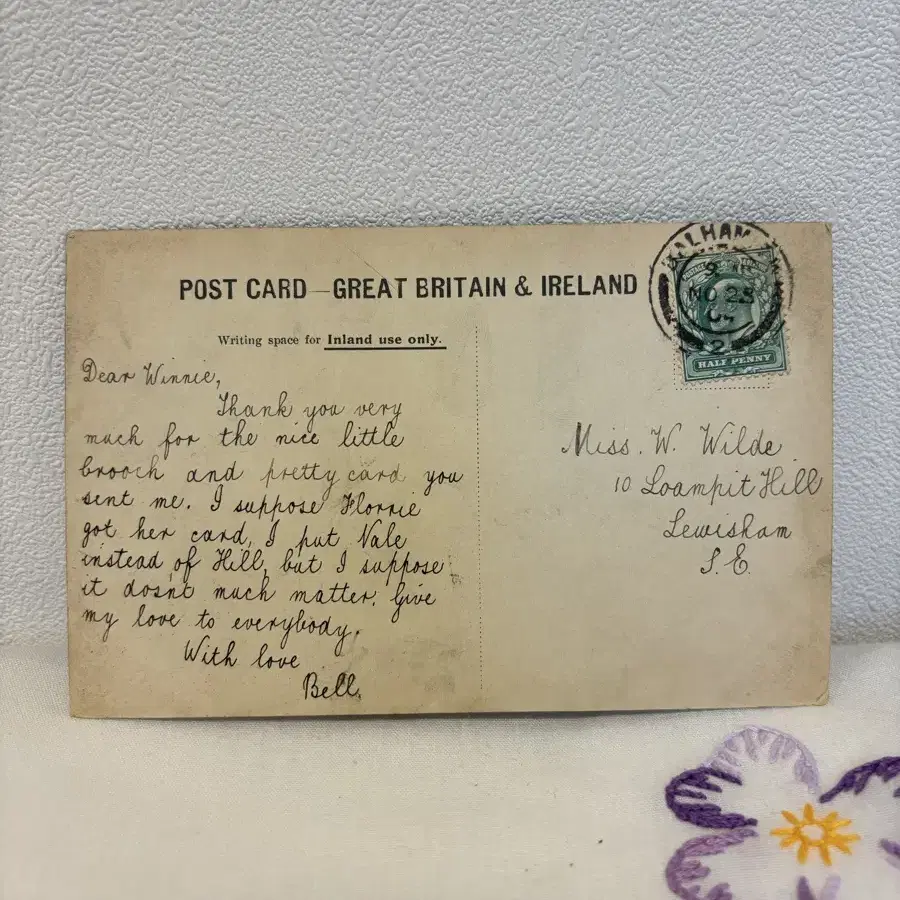 POST CARD — GREAT BRITAIN & IRELAND
Writing space for Inland use only.
BALHAM
NO 25
HALF PENNY
Dear Winnie,
Thank you very
much for the nice little
brooch and pretty card you
sent me. I suppose Florrie
got her card, I put Vale
instead of Hill, but I suppose
it dosn't much matter. Give
my love to everybody.
With love
Bell.
Miss. W. Wilde
10 Loampit Hill
Lewisham
S.E.